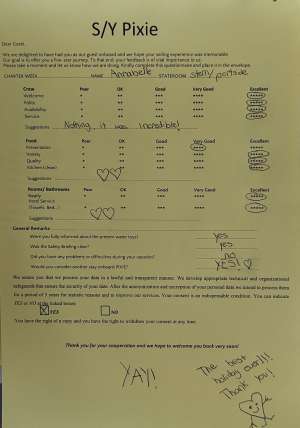 S/Y Pixie
Dear Guest,
We are delighted to have had you as our guest onboard and hope your sailing experience was memorable.
Our goal is to offer you a five-star journey. To that end, your feedback is of vital importance to us.
Please take a moment and let us know how we are doing. Kindly complete this questionnaire and place it in the envelope.
CHARTER WEEK NAME Annabelle STATEROOM
Crew Poor OK Good Very Good Excellent
Welcome * ** *** **** *****
Polite * ** *** **** *****
Availability * ** *** **** *****
Service * ** *** **** *****
Suggestions Nothing, it was incredible!
Food Poor OK Good Very Good Excellent
Presentation * ** *** **** *****
Variety * ** *** **** *****
Quality * ** *** **** *****
Kitchen (clean) * ** *** **** *****
Suggestions ♡♡
Rooms/ Bathrooms Poor OK Good Very Good Excellent
Ready * ** *** **** *****
Hotel Service
(Towels, Bed...) * ** *** **** *****
Suggestions ♡♡
General Remarks
Were you fully informed about the present water toys? yes
Was the Safety Briefing clear? yes
Did you have any problems or difficulties during your vacation? no
Would you consider another stay onboard PIXIE? YES! ♡
We assure you that we process your data in a lawful and transparent manner. We develop appropriate technical and organizational
safeguards that ensure the security of your data. After the anonymization and encryption of your personal data we intend to process them
for a period of 5 years for statistic reasons and to improve our services. Your consent is an indispensable condition. You can indicate
YES or NO at the linked boxes:
YES NO
You have the right of access and you have the right to withdraw your consent at any time.
Thank you for your cooperation and we hope to welcome you back very soon!
YAY!
The best
holiday ever!!!
Thank you!